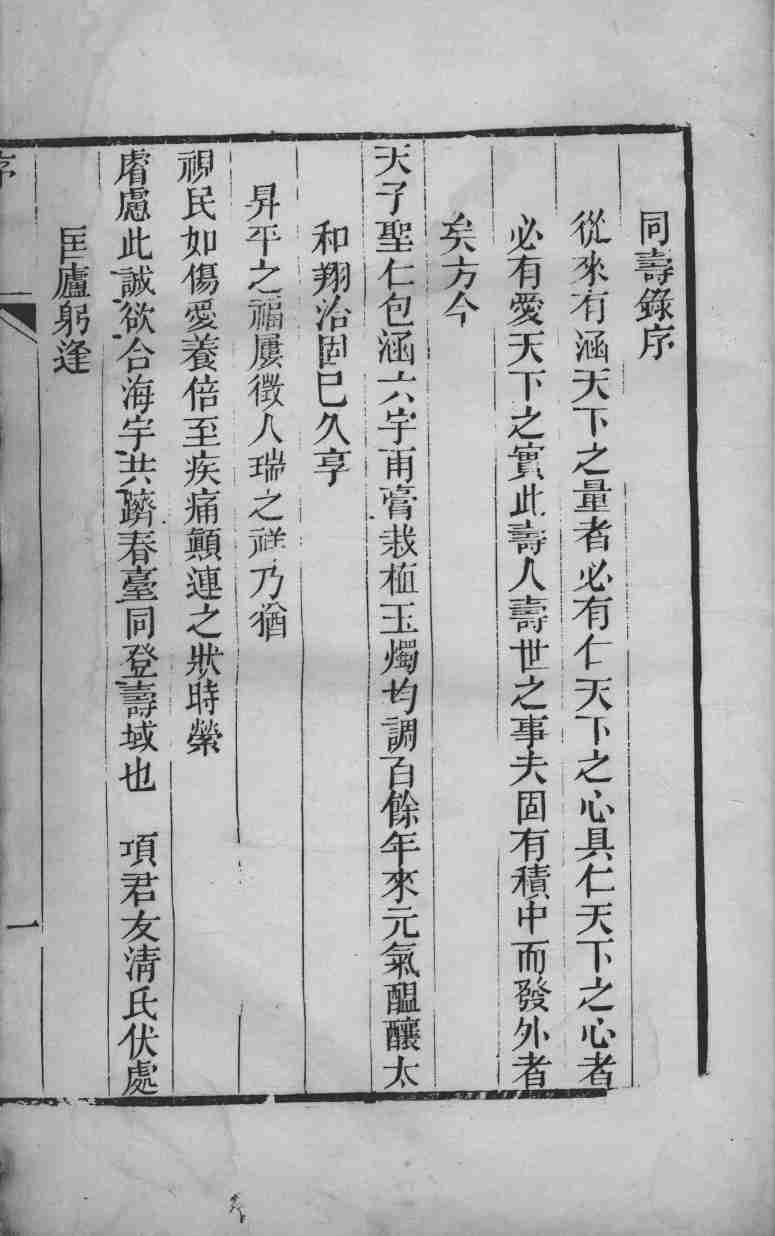 同壽錄序
從來有涵天下之量者必有仁天下之心具仁天下之心者
必有愛天下之實此壽人壽世之事夫固有積中而發外者
矣方今
天子聖仁包涵六宇甬膏栽植玉燭均調百餘年來元氣醞釀太
和翔洽固已久享
昇平之福屢徵人瑞之祥乃猶
視民如傷愛養倍至疾痛顛連之狀時縈
睿慮此誠欲合海宇共躋春臺同登壽域也　項君友清氏伏處
匡廬躬逢
序
一